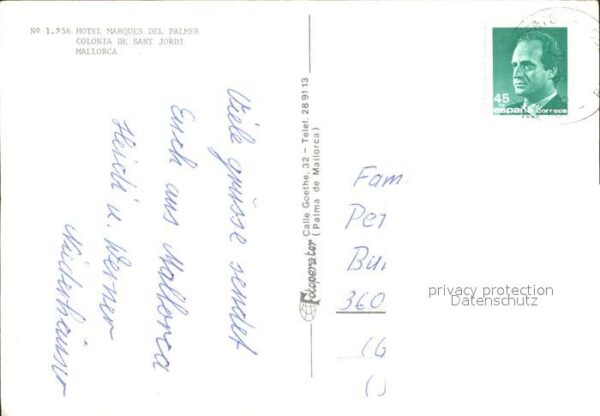 No 1.956 HOTEL MARQUES DEL PALMER
COLONIA DE SANT JORDI
MALLORCA
Viele grüsse sendet
Euch aus Mallorca
Heidi u. Werner
Niederhäuser
Fotoperator Calle Goethe, 32 – Telef. 28 91 13
(Palma de Mallorca)
45
españa correos
Fam.
Pet
360
privacy protection
Datenschutz